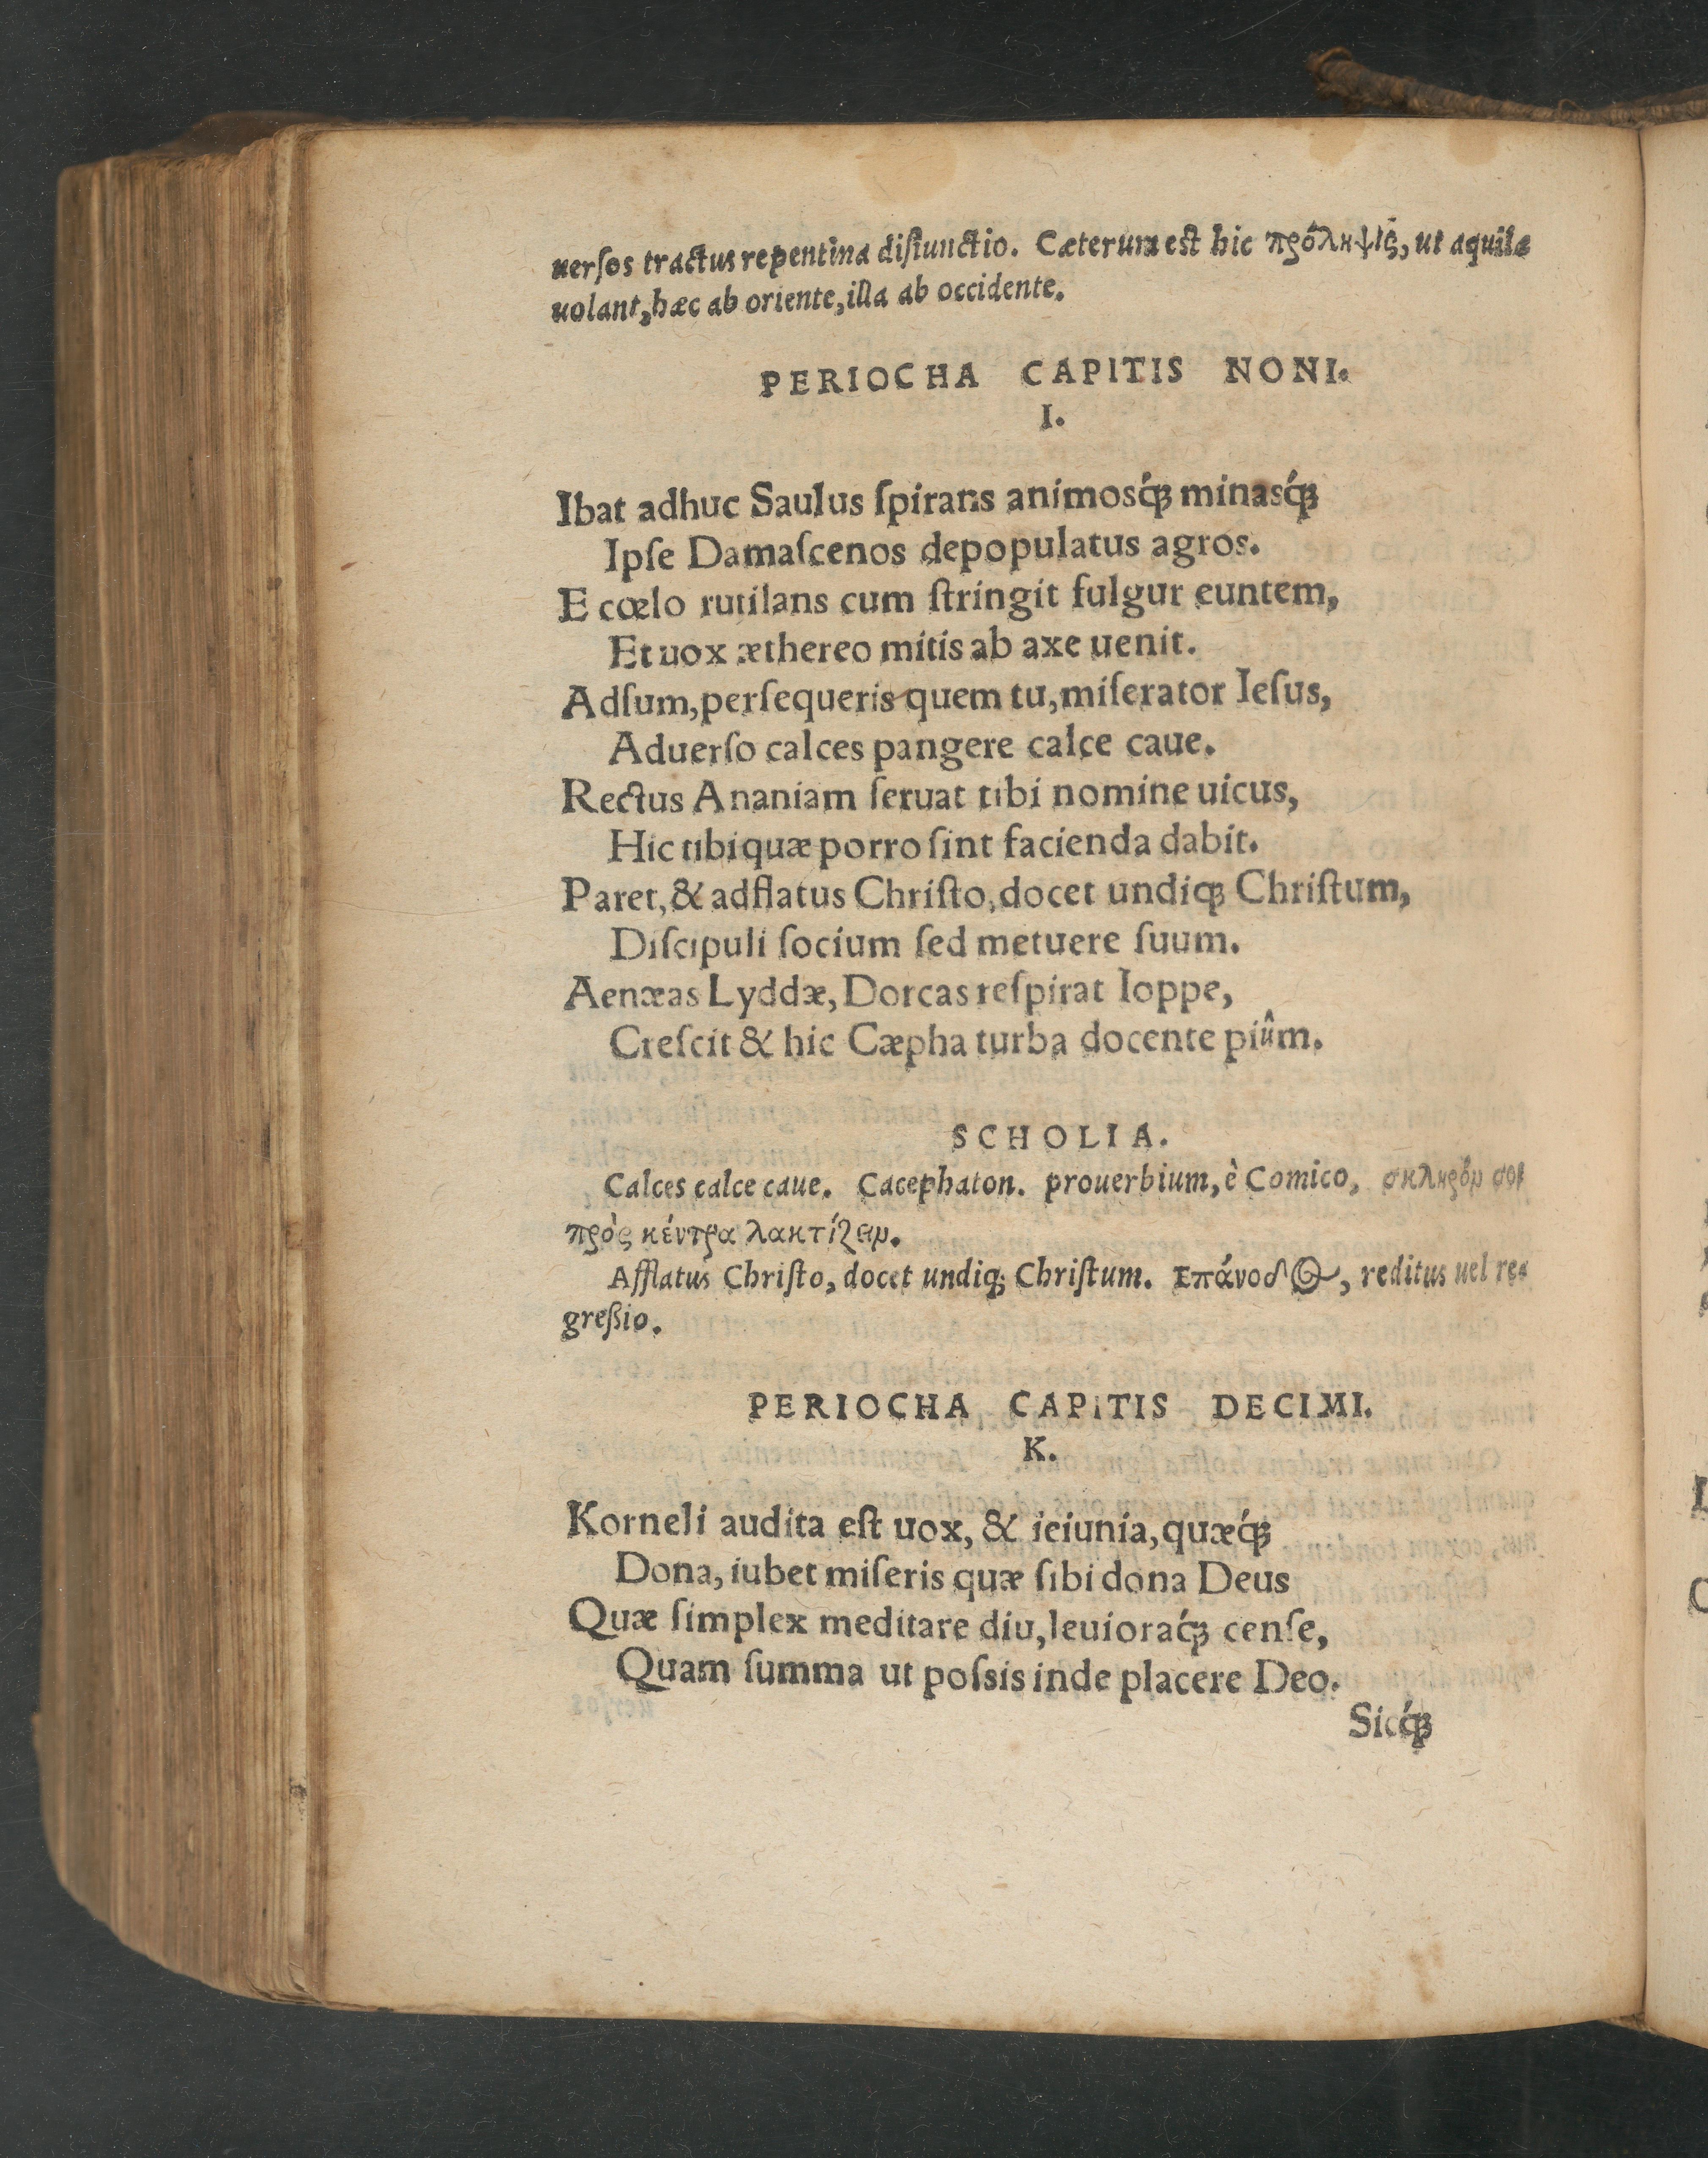 uerſos tractus repentina diſiunctio. Cæterum est hic πρόληψις, ut aquilæ
uolant, hæc ab oriente, illa ab occidente.
PERIOCHA CAPITIS NONI.
I.
Ibat adhuc Saulus ſpirans animosq́ꝫ minasq́ꝫ
Ipſe Damaſcenos depopulatus agros.
E cœlo rutilans cum ſtringit fulgur euntem,
Et uox æthereo mitis ab axe uenit.
Adſum, perſequeris quem tu, miſerator Ieſus,
Aduerſo calces pangere calce caue.
Rectus Ananiam ſeruat tibi nomine uicus,
Hic tibi quæ porro ſint facienda dabit.
Paret, & adflatus Chriſto, docet undiqꝫ Chriſtum,
Diſcipuli ſocium ſed metuere ſuum.
Aenæas Lyddæ, Dorcas reſpirat Ioppe,
Creſcit & hic Cæpha turba docente piûm.
SCHOLIA.
Calces calce caue. Cacephaton. prouerbium, è Comico, σκληρόν σοι
πρὸς κέντρα λακτίζειν.
Afflatus Chriſto, docet undiqꝫ Chriſtum. Ἐπάνοδος, reditus uel re⸗
greßio.
PERIOCHA CAPITIS DECIMI.
K.
Korneli audita eſt uox, & ieiunia, quæq́ꝫ
Dona, iubet miſeris quæ ſibi dona Deus
Quæ ſimplex meditare diu, leuioraq́ꝫ cenſe,
Quam ſumma ut poſsis inde placere Deo.
Sicq́ꝫ